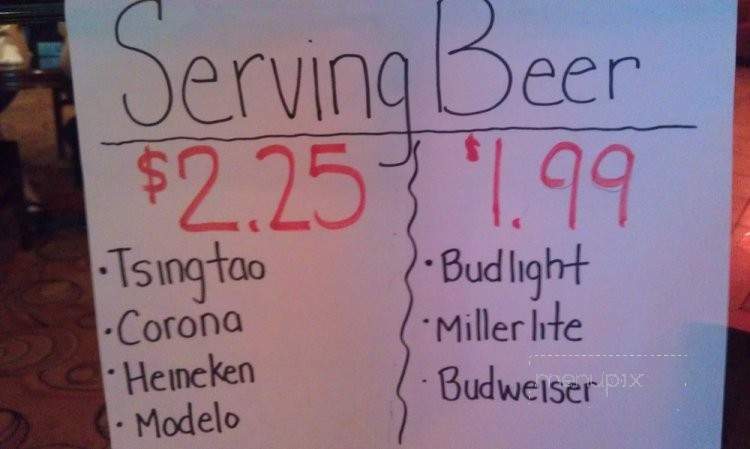 Serving Beer
$2.25
• Tsingtao
• Corona
• Heineken
• Modelo
$1.99
• Budlight
• Miller lite
• Budweiser
menupix